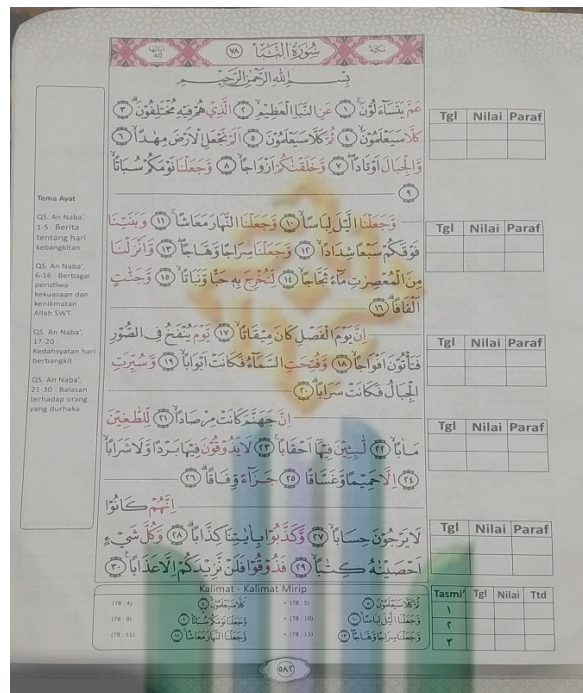 اياتها 40
سُوْرَةُ النَّبَاِ
٧٨
مكية
بِسْمِ اللّٰهِ الرَّحْمٰنِ الرَّحِيْمِ
عَمَّ يَتَسَاۤءَلُوْنَۚ ١ عَنِ النَّبَاِ الْعَظِيْمِۙ ٢ الَّذِيْ هُمْ فِيْهِ مُخْتَلِفُوْنَۗ ٣
كَلَّا سَيَعْلَمُوْنَۙ ٤ ثُمَّ كَلَّا سَيَعْلَمُوْنَ ٥ اَلَمْ نَجْعَلِ الْاَرْضَ مِهٰدًاۙ ٦
وَّالْجِبَالَ اَوْتَادًاۖ ٧ وَّخَلَقْنٰكُمْ اَزْوَاجًاۙ ٨ وَّجَعَلْنَا نَوْمَكُمْ سُبَاتًاۙ
٩
وَّجَعَلْنَا الَّيْلَ لِبَاسًاۙ ١٠ وَّجَعَلْنَا النَّهَارَ مَعَاشًاۚ ١١ وَبَنَيْنَا
فَوْقَكُمْ سَبْعًا شِدَادًاۙ ١٢ وَّجَعَلْنَا سِرَاجًا وَّهَّاجًاۖ ١٣ وَّاَنْزَلْنَا
مِنَ الْمُعْصِرٰتِ مَاۤءً ثَجَّاجًاۙ ١٤ لِّنُخْرِجَ بِهٖ حَبًّا وَّنَبَاتًاۙ ١٥ وَّجَنّٰتٍ
اَلْفَافًاۗ ١٦
اِنَّ يَوْمَ الْفَصْلِ كَانَ مِيْقَاتًاۙ ١٧ يَّوْمَ يُنْفَخُ فِى الصُّوْرِ
فَتَأْتُوْنَ اَفْوَاجًاۙ ١٨ وَّفُتِحَتِ السَّمَاۤءُ فَكَانَتْ اَبْوَابًاۙ ١٩ وَّسُيِّرَتِ
الْجِبَالُ فَكَانَتْ سَرَابًاۗ ٢٠
اِنَّ جَهَنَّمَ كَانَتْ مِرْصَادًاۙ ٢١ لِّلطّٰغِيْنَ
مَاٰبًاۙ ٢٢ لّٰبِثِيْنَ فِيْهَآ اَحْقَابًاۚ ٢٣ لَا يَذُوْقُوْنَ فِيْهَا بَرْدًا وَّلَا شَرَابًاۙ
٢٤ اِلَّا حَمِيْمًا وَّغَسَّاقًاۙ ٢٥ جَزَاۤءً وِّفَاقًاۗ ٢٦
اِنَّهُمْ كَانُوْا
لَا يَرْجُوْنَ حِسَابًاۙ ٢٧ وَّكَذَّبُوْا بِاٰيٰتِنَا كِذَّابًاۗ ٢٨ وَكُلَّ شَيْءٍ
اَحْصَيْنٰهُ كِتٰبًاۙ ٢٩ فَذُوْقُوْا فَلَنْ نَّزِيْدَكُمْ اِلَّا عَذَابًا ٣٠
Tema Ayat
QS. An Naba',
1-5 : Berita
tentang hari
kebangkitan
QS. An Naba',
6-16 : Berbagai
peristiwa
kekuasaan dan
kenikmatan
Allah SWT.
QS. An Naba',
17-20 :
Kedahsyatan hari
berbangkit
QS. An Naba',
21-30 : Balasan
terhadap orang
yang durhaka
Tgl Nilai Paraf
Tgl Nilai Paraf
Tgl Nilai Paraf
Tgl Nilai Paraf
Tgl Nilai Paraf
Kalimat - Kalimat Mirip
(78 : 4) كَلَّا سَيَعْلَمُوْنَۙ ٤ < (78 : 5) ثُمَّ كَلَّا سَيَعْلَمُوْنَ ٥
(78 : 9) وَّجَعَلْنَا نَوْمَكُمْ سُبَاتًاۙ ٩ < (78 : 10) وَّجَعَلْنَا الَّيْلَ لِبَاسًاۙ ١٠
(78 : 11) وَّجَعَلْنَا النَّهَارَ مَعَاشًاۚ ١١ < (78 : 13) وَّجَعَلْنَا سِرَاجًا وَّهَّاجًاۖ ١٣
Tasmi' Tgl Nilai Ttd
١
٢
٣
٥٨٢